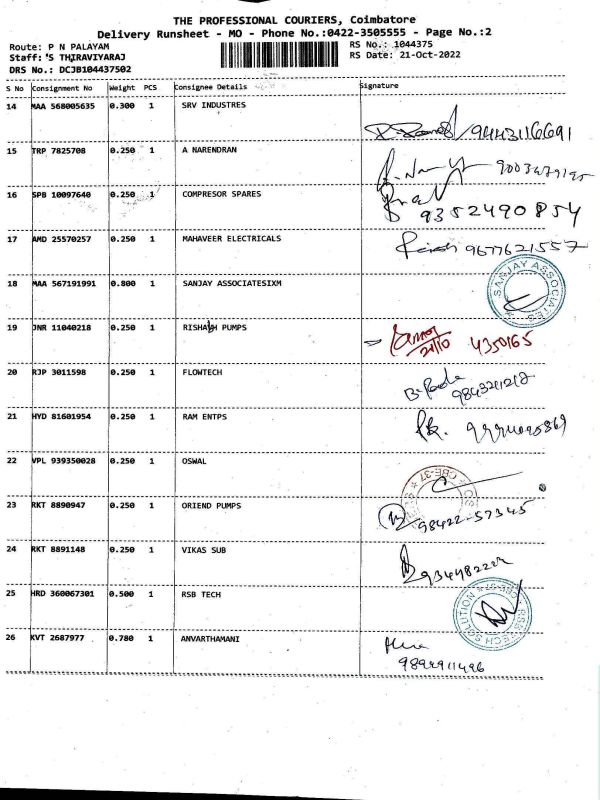 THE PROFESSIONAL COURIERS, Coimbatore
Delivery Runsheet - MO - Phone No.:0422-3505555 - Page No.:2
Route: P N PALAYAM
RS No.: 1044375
Staff: S THIRAVIYARAJ
RS Date: 21-Oct-2022
DRS No.: DCJB104437502
S No Consignment No Weight PCS Consignee Details Signature
14 MAA 568005635 0.300 1 SRV INDUSTRES
9443116691
15 TRP 7825708 0.250 1 A NARENDRAN
9003479195
16 SPB 10097640 0.250 1 COMPRESOR SPARES
9352490854
17 AMD 25570257 0.250 1 MAHAVEER ELECTRICALS
9677621557
18 MAA 567191991 0.800 1 SANJAY ASSOCIATESIXM
SANJAY ASSOCIATES
19 JNR 11040218 0.250 1 RISHABH PUMPS
21/10 4350165
20 RJP 3011598 0.250 1 FLOWTECH
21 HYD 81601954 0.250 1 RAM ENTPS
22 VPL 939350028 0.250 1 OSWAL
CBE-37
23 RKT 8890947 0.250 1 ORIEND PUMPS
98422-57345
24 RKT 8891148 0.250 1 VIKAS SUB
25 HRD 360067301 0.500 1 RSB TECH
RSB TECH SOLUTION
26 KVT 2687977 0.780 1 ANVARTHAMANI